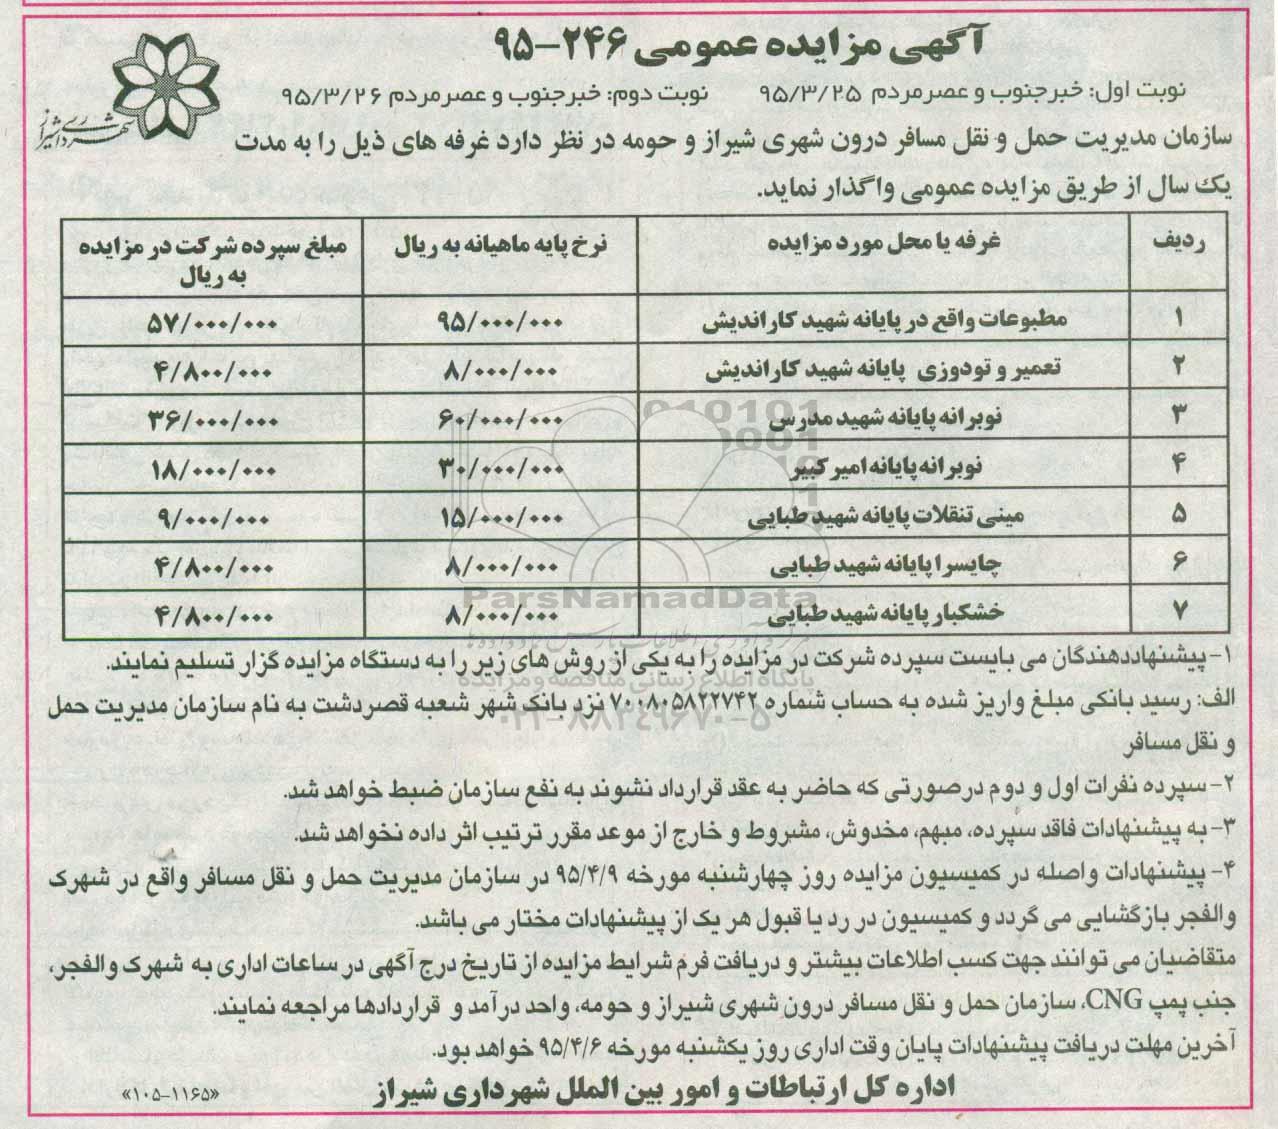 آگهی مزایده عمومی ۲۴۶-۹۵
شهرداری شیراز
نوبت اول: خبرجنوب و عصرمردم ۹۵/۳/۲۵ نوبت دوم: خبرجنوب و عصرمردم ۹۵/۳/۲۶
سازمان مدیریت حمل و نقل مسافر درون شهری شیراز و حومه در نظر دارد غرفه های ذیل را به مدت
یک سال از طریق مزایده عمومی واگذار نماید.
ردیف غرفه یا محل مورد مزایده نرخ پایه ماهیانه به ریال مبلغ سپرده شرکت در مزایده
به ریال
۱ مطبوعات واقع در پایانه شهید کاراندیش ۹۵/۰۰۰/۰۰۰ ۵۷/۰۰۰/۰۰۰
۲ تعمیر و تودوزی پایانه شهید کاراندیش ۸/۰۰۰/۰۰۰ ۴/۸۰۰/۰۰۰
۳ نوبرانه پایانه شهید مدرس ۶۰/۰۰۰/۰۰۰ ۳۶/۰۰۰/۰۰۰
۴ نوبرانه پایانه امیرکبیر ۳۰/۰۰۰/۰۰۰ ۱۸/۰۰۰/۰۰۰
۵ مینی تنقلات پایانه شهید طبایی ۱۵/۰۰۰/۰۰۰ ۹/۰۰۰/۰۰۰
۶ چایسرا پایانه شهید طبایی ۸/۰۰۰/۰۰۰ ۴/۸۰۰/۰۰۰
۷ خشکبار پایانه شهید طبایی ۸/۰۰۰/۰۰۰ ۴/۸۰۰/۰۰۰
ParsNamadData
پایگاه اطلاع رسانی مناقصه و مزایده
۰۲۱-۸۸۳۴۹۶۷۰-۵
۱- پیشنهاددهندگان می بایست سپرده شرکت در مزایده را به یکی از روش های زیر را به دستگاه مزایده گزار تسلیم نمایند.
الف: رسید بانکی مبلغ واریز شده به حساب شماره ۷۰۰۸۰۵۸۲۲۷۴۲ نزد بانک شهر شعبه قصردشت به نام سازمان مدیریت حمل
و نقل مسافر
۲- سپرده نفرات اول و دوم درصورتی که حاضر به عقد قرارداد نشوند به نفع سازمان ضبط خواهد شد.
۳- به پیشنهادات فاقد سپرده، مبهم، مخدوش، مشروط و خارج از موعد مقرر ترتیب اثر داده نخواهد شد.
۴- پیشنهادات واصله در کمیسیون مزایده روز چهارشنبه مورخه ۹۵/۴/۹ در سازمان مدیریت حمل و نقل مسافر واقع در شهرک
والفجر بازگشایی می گردد و کمیسیون در رد یا قبول هر یک از پیشنهادات مختار می باشد.
متقاضیان می توانند جهت کسب اطلاعات بیشتر و دریافت فرم شرایط مزایده از تاریخ درج آگهی در ساعات اداری به شهرک والفجر،
جنب پمپ CNG، سازمان حمل و نقل مسافر درون شهری شیراز و حومه، واحد درآمد و قراردادها مراجعه نمایند.
آخرین مهلت دریافت پیشنهادات پایان وقت اداری روز یکشنبه مورخه ۹۵/۴/۶ خواهد بود.
اداره کل ارتباطات و امور بین الملل شهرداری شیراز
«۱۰۵-۱۱۶۵»